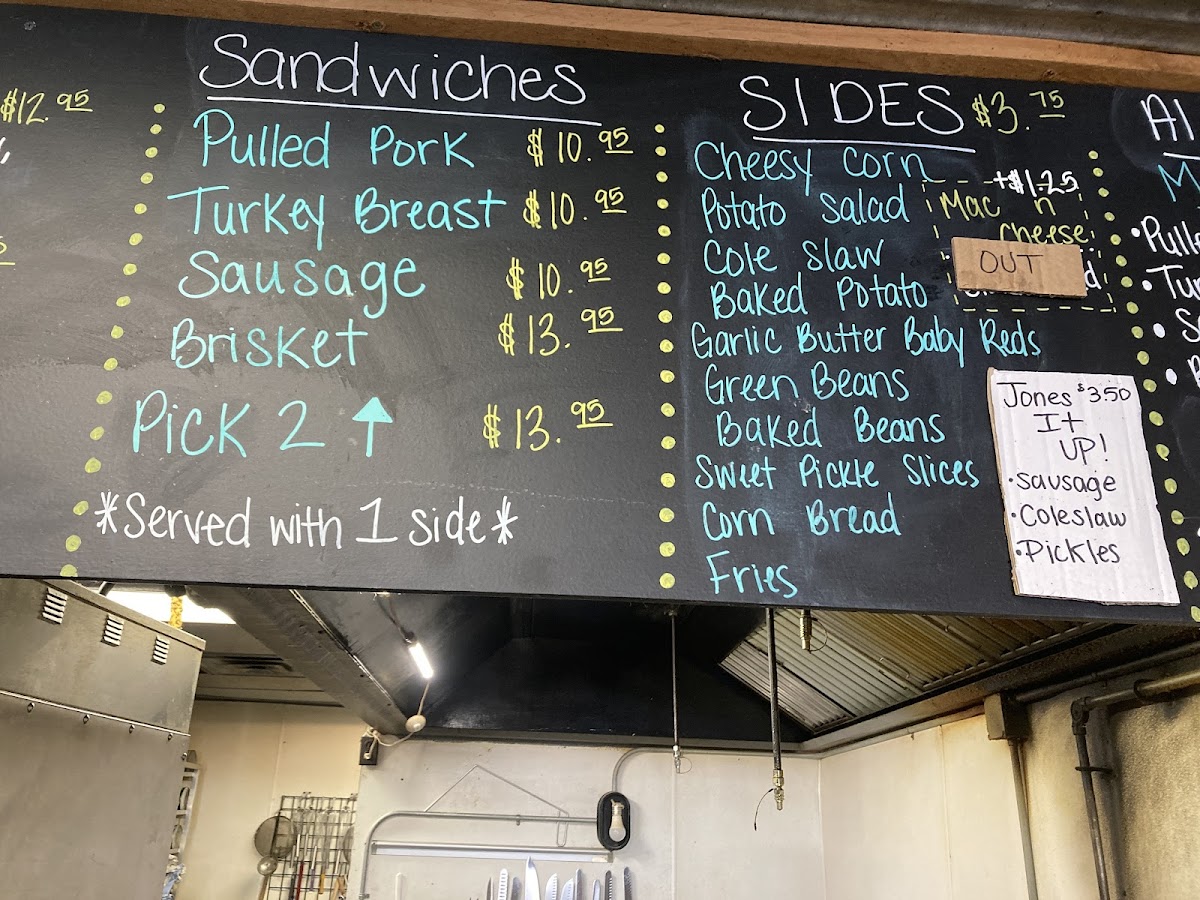 $12.95
Sandwiches
Pulled Pork $10.95
Turkey Breast $10.95
Sausage $10.95
Brisket $13.95
Pick 2 ↑ $13.95
*Served with 1 side*
SIDES $3.75
Cheesy corn
Potato salad
Cole slaw
Baked Potato
Garlic Butter Baby Reds
Green Beans
Baked Beans
Sweet Pickle Slices
Corn Bread
Fries
+$1.25
Mac n
cheese
OUT
Jones $3.50
It
UP!
•Sausage
•Coleslaw
•Pickles